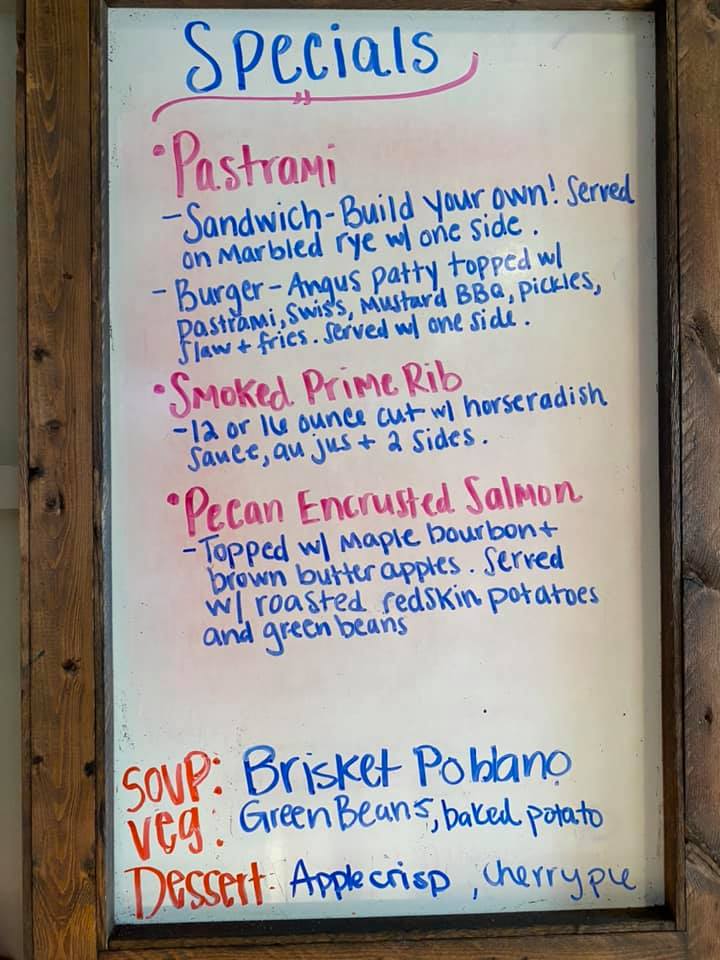 Specials
•Pastrami
-Sandwich-Build your own! Served
on Marbled rye w/ one side.
-Burger-Angus patty topped w/
pastrami, Swiss, Mustard BBQ, pickles,
slaw + fries. Served w/ one side.
•Smoked Prime Rib
-12 or 16 ounce cut w/ horseradish
sauce, au jus + 2 sides.
•Pecan Encrusted Salmon
-Topped w/ Maple bourbon +
brown butter apples. Served
w/ roasted redskin potatoes
and green beans
Soup: Brisket Poblano
Veg: Green Beans, baked potato
Dessert: Apple crisp, cherry pie